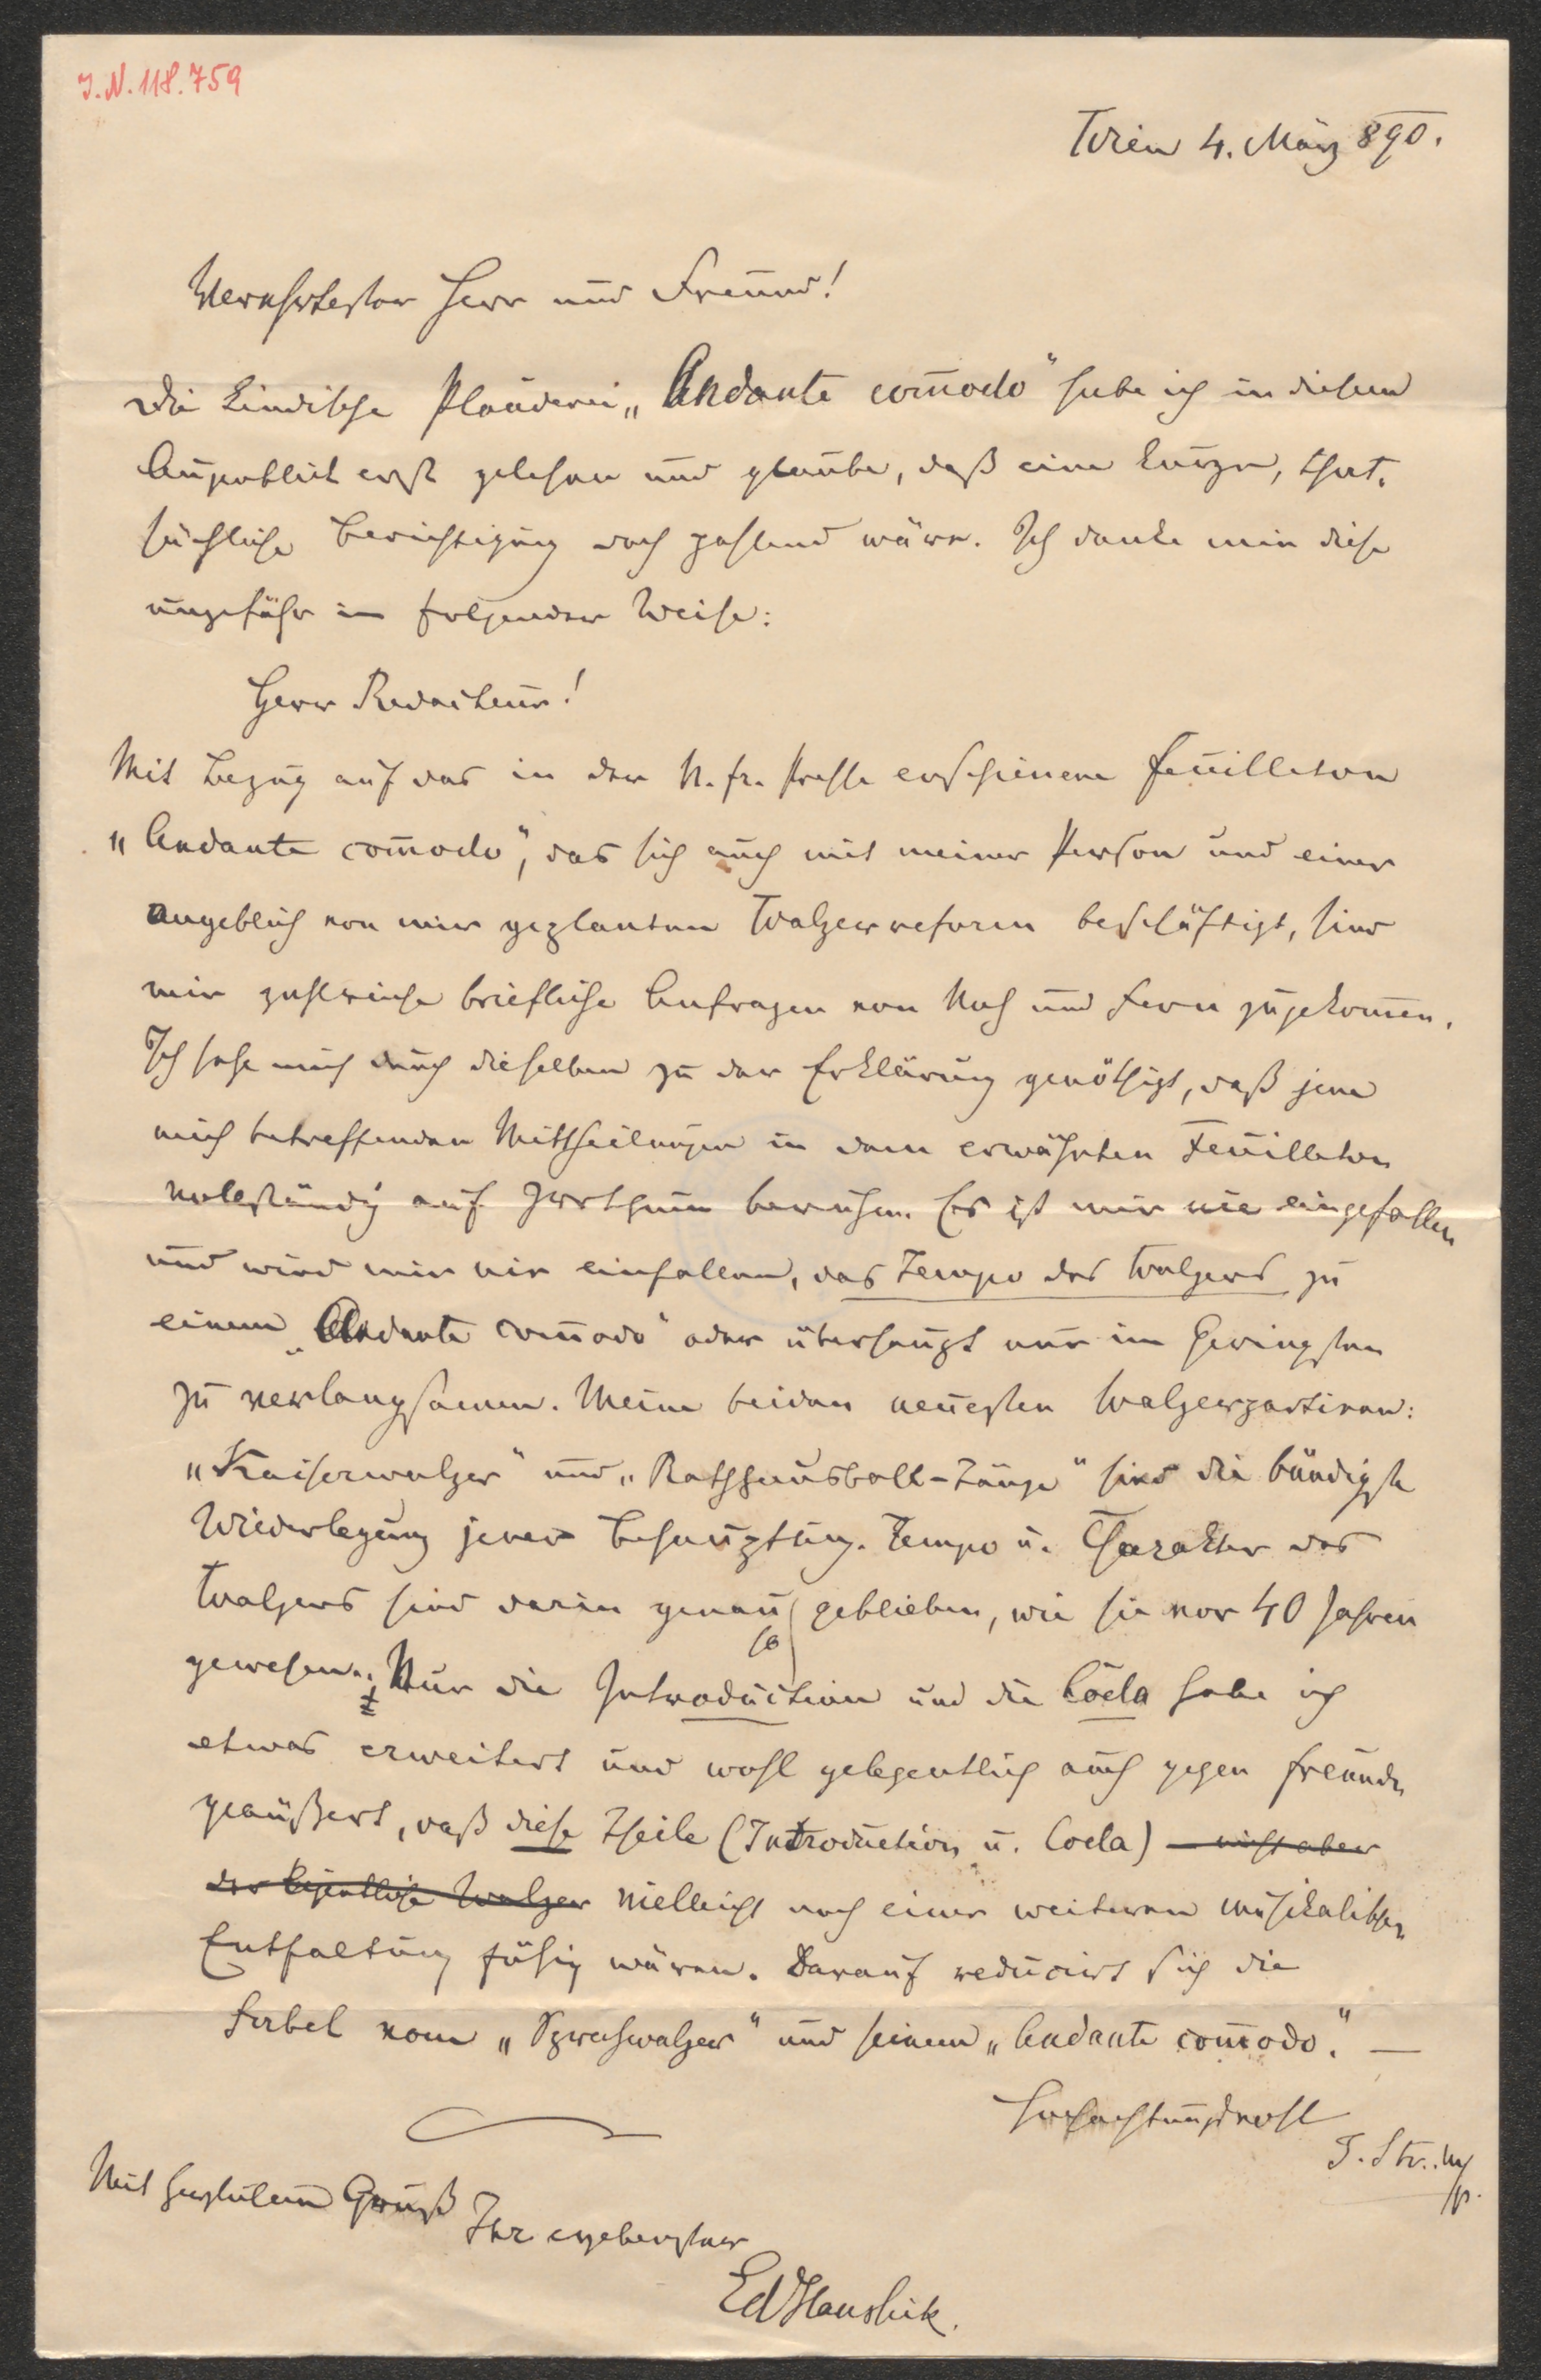 J.N. 118.759
Wien 4. März 890.
Verehrtester Herr und Freund!
Die kindische Plauderei „Andante com̄odo" habe ich in diesem
Augenblick erst gelesen und glaube, daß eine kurze, that-
sächliche Berichtigung doch passend wäre. Ich denke mir diese
ungefähr in folgender Weise:
Herr Redacteur!
Mit Bezug auf das in der N. fr. Presse erschienene Feuilleton
„Andante com̄odo", das sich auch mit meiner Person und einer
angeblich von mir geplanten Walzerreform beschäftigt, sind
mir zahlreiche briefliche Anfragen von Nah und Fern zugekom̄en.
Ich sehe mich durch dieselben zu der Erklärung genöthigt, daß jene
mich betreffenden Mittheilungen in dem erwähnten Feuilleton
vollständig auf Irrthum beruhen. Es ist mir nie eingefallen
und wird mir nie einfallen, das Tempo des Walzers zu
einem „Andante com̄odo" oder überhaupt nur im Geringsten
zu verlangsamen. Meine beiden neuesten Walzerpartieen:
„Kaiserwalzer" und „Rathhausball-Tänze" sind die bündigste
Widerlegung jener Behauptung. Tempo u. Charakter des
Walzers sind darin genau so geblieben, wie sie vor 40 Jahren
gewesen; Nur die Introduction und die Coda habe ich
etwas erweitert und wohl gelegentlich auch gegen Freunde
geäußert, daß diese Theile (Introduction u. Coda) – nicht aber
der eigentliche Walzer vielleicht noch einer weiteren musikalischen
Entfaltung fähig wären. Darauf reducirt sich die
Fabel vom „Sprechwalzer" und seinem „Andante com̄odo." —
Hochachtungsvoll
J. Str. m/p.
Mit herzlichem Gruß
Ihr ergebenster
EdHanslick.